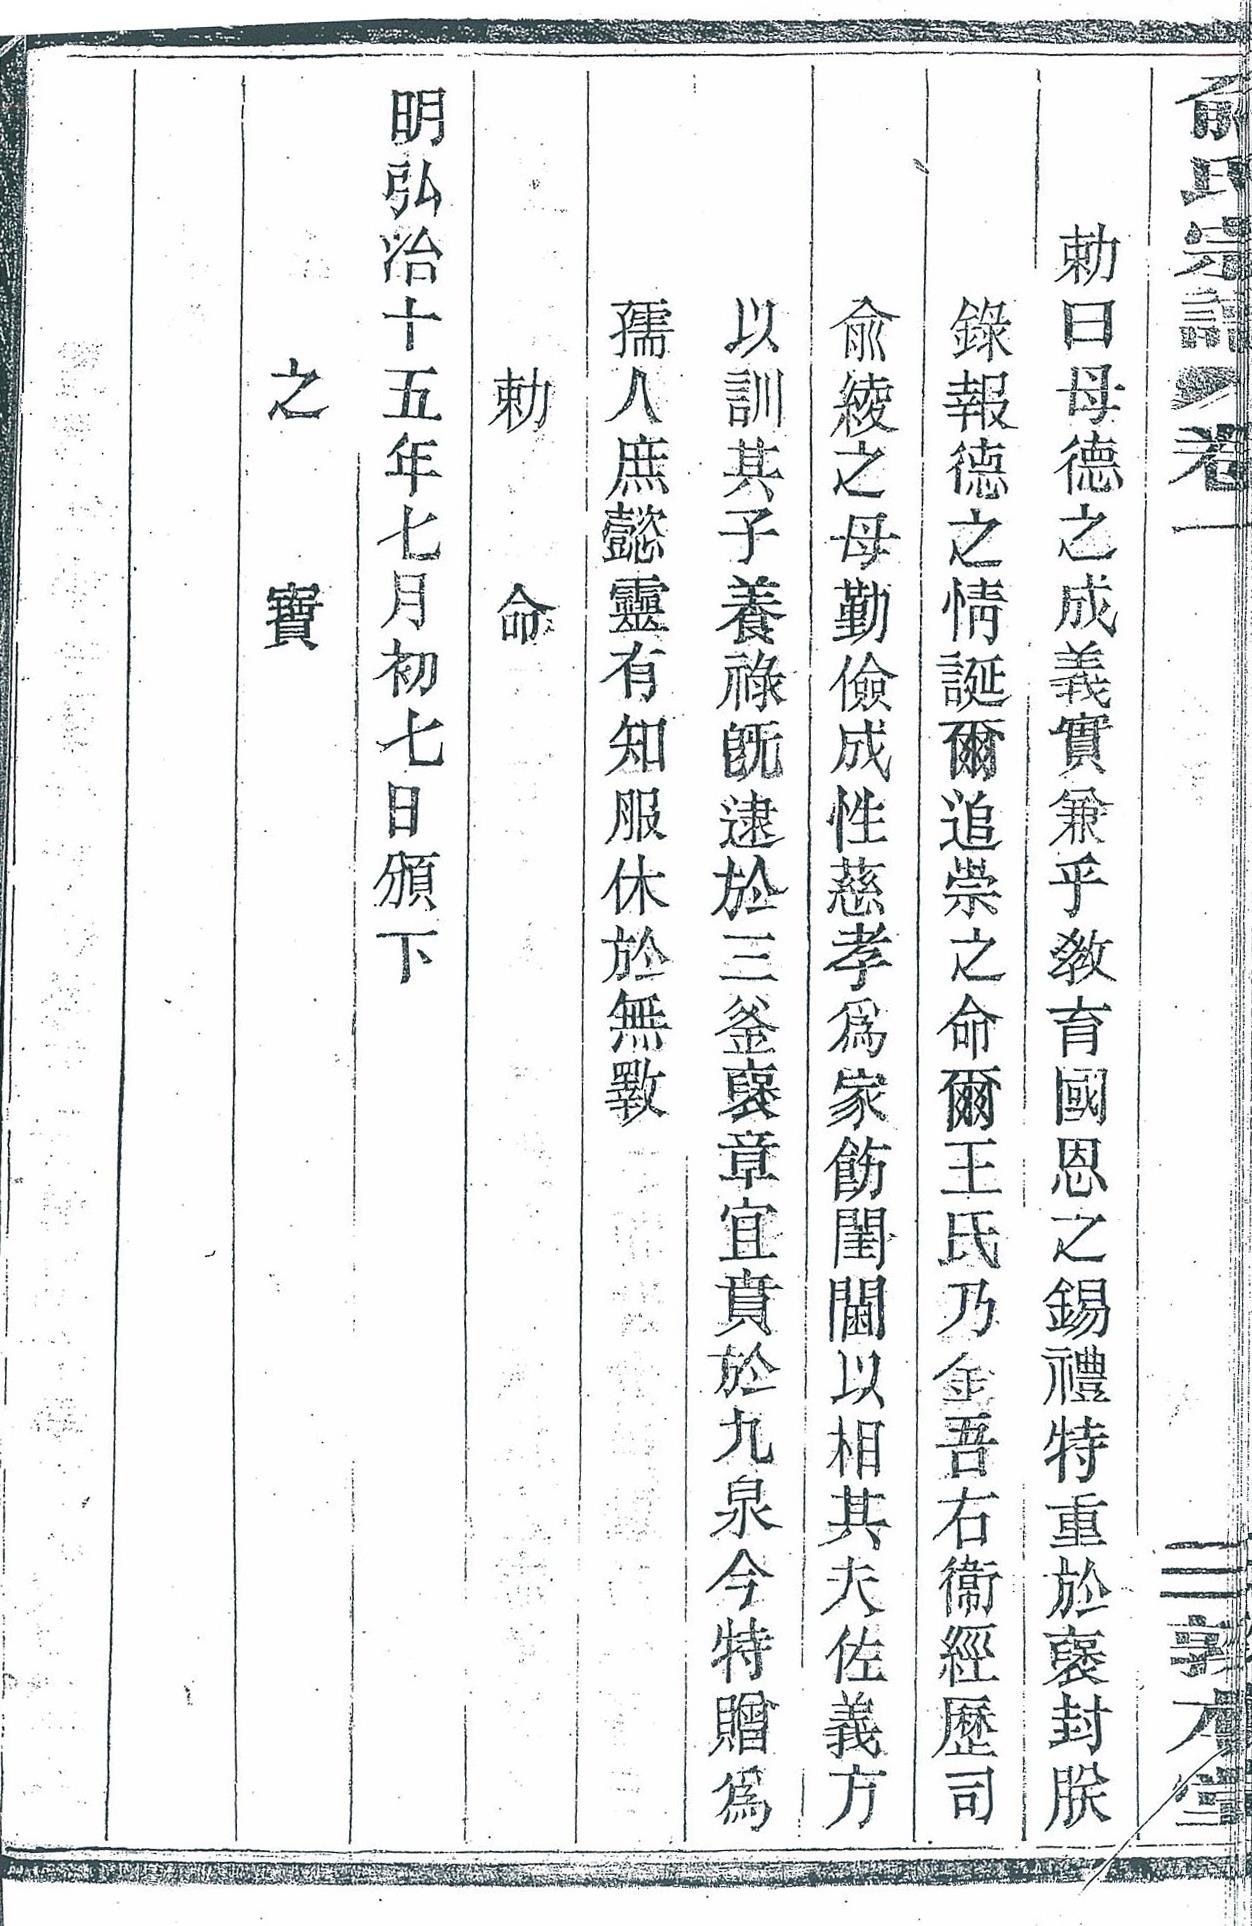 俞氏宗譜 卷一 三 敦本堂
勅曰母德之成義實兼乎敎育國恩之錫禮特重於襃封朕
錄報德之情誕爾追崇之命爾王氏乃金吾右衞經歷司
俞綾之母勤儉成性慈孝爲家飭閨閫以相其夫佐義方
以訓其子養祿旣逮於三釜襃章宜賁於九泉今特贈爲
孺人庶懿靈有知服休於無斁
勅 命
明弘治十五年七月初七日頒下
之 寶